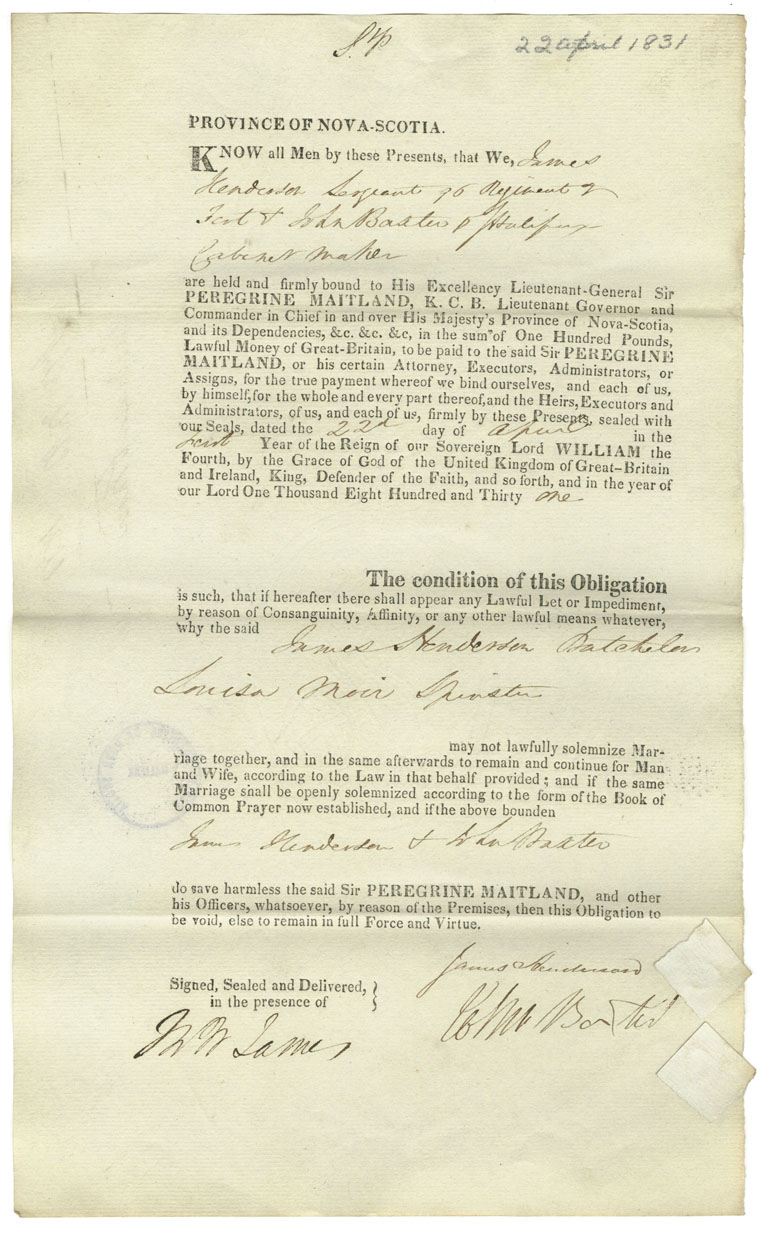 22 april 1831
PROVINCE OF NOVA-SCOTIA.
KNOW all Men by these Presents, that We, James
Henderson Sergeant 96 Regiment of
Foot & John Baxter of Halifax
Cabinet maker
are held and firmly bound to His Excellency Lieutenant-General Sir
PEREGRINE MAITLAND, K. C. B. Lieutenant Governor and
Commander in Chief in and over His Majesty's Province of Nova-Scotia,
and its Dependencies, &c. &c. &c, in the sum of One Hundred Pounds,
Lawful Money of Great-Britain, to be paid to the said Sir PEREGRINE
MAITLAND, or his certain Attorney, Executors, Administrators, or
Assigns, for the true payment whereof we bind ourselves, and each of us,
by himself, for the whole and every part thereof, and the Heirs, Executors and
Administrators, of us, and each of us, firmly by these Presents, sealed with
our Seals, dated the 22d day of April in the
first Year of the Reign of our Sovereign Lord WILLIAM the
Fourth, by the Grace of God of the United Kingdom of Great-Britain
and Ireland, King, Defender of the Faith, and so forth, and in the year of
our Lord One Thousand Eight Hundred and Thirty one
The condition of this Obligation
is such, that if hereafter there shall appear any Lawful Let or Impediment,
by reason of Consanguinity, Affinity, or any other lawful means whatever,
why the said James Henderson Batchelor
Louisa Moir Spinster
may not lawfully solemnize Mar-
riage together, and in the same afterwards to remain and continue for Man
and Wife, according to the Law in that behalf provided; and if the same
Marriage shall be openly solemnized according to the form of the Book of
Common Prayer now established, and if the above bounden
James Henderson & John Baxter
do save harmless the said Sir PEREGRINE MAITLAND, and other
his Officers, whatsoever, by reason of the Premises, then this Obligation to
be void, else to remain in full Force and Virtue.
James Henderson
Signed, Sealed and Delivered,
in the presence of
John Baxter
James